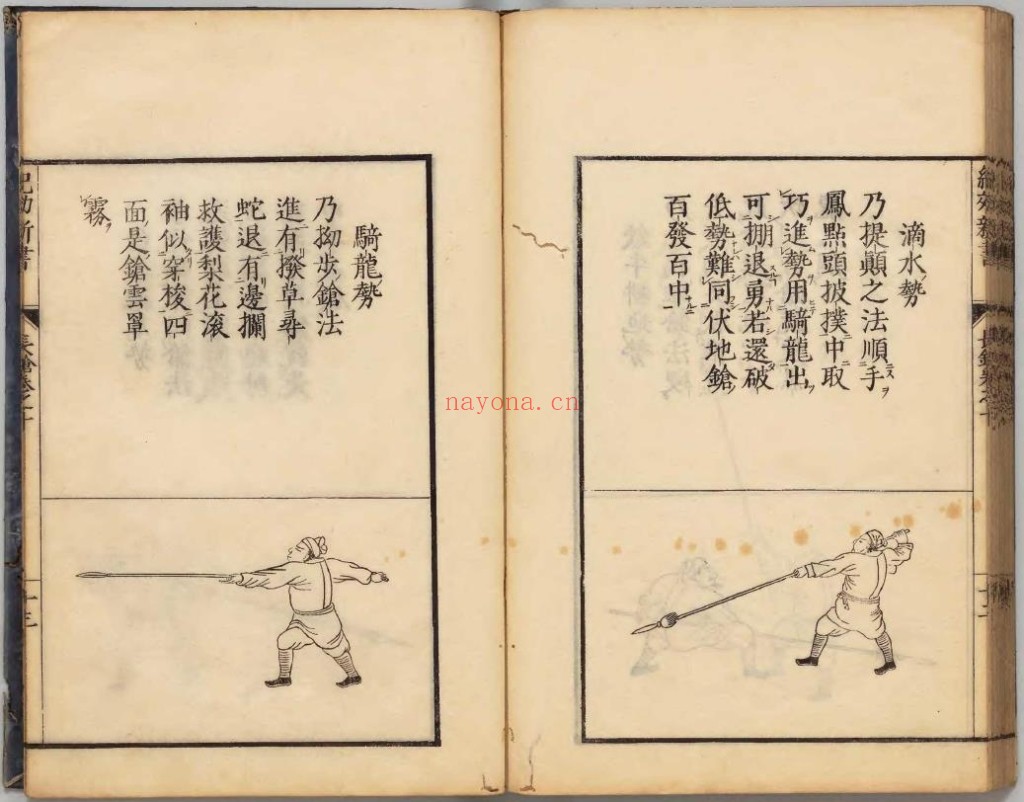 滴水勢
乃提顚之法順手
鳳點頭披撲中取
巧進勢用騎龍出
可掤退勇若還破
低勢難同伏地鎗
百發百中
騎龍勢
乃拗步鎗法
進有撥草尋
蛇退有邊攔
救護梨花滾
袖似穿梭四
面是鎗雲罩
霧
紀効新書
長鎗卷之十
十三
nayona.cn